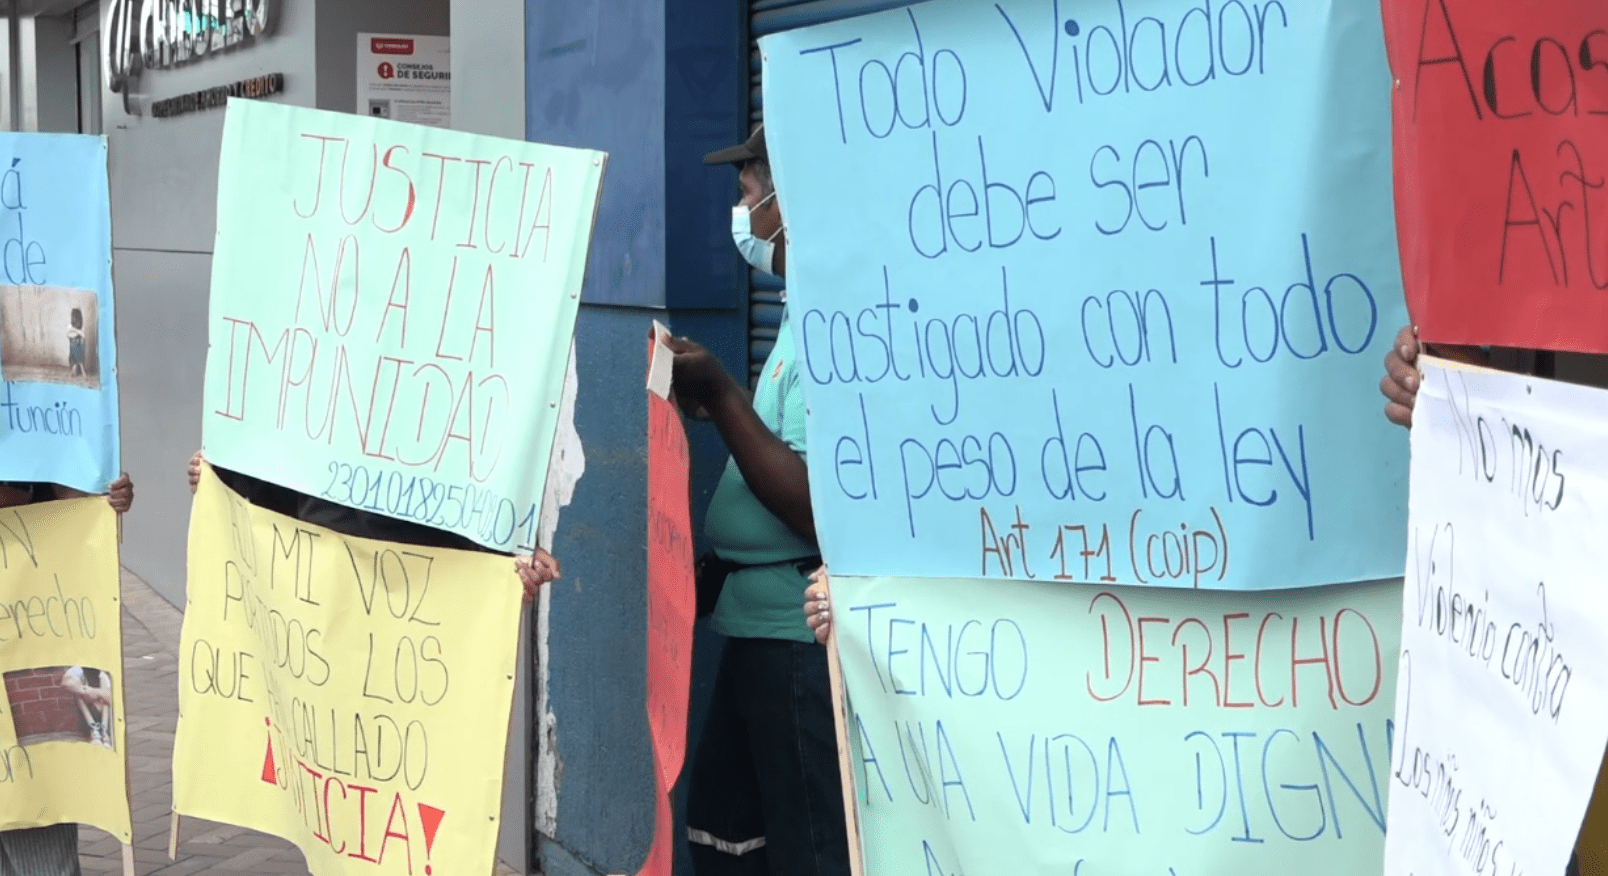 CONSEJOS
DE SEGURI
á
de
función
N
erecho
ón
JUSTICIA
NO A LA
IMPUNIDAD
MI VOZ
LOS
QUE CALLADO
¡JUSTICIA!
Todo Violador
debe ser
castigado con todo
el peso de la ley
Art 171 (coip)
TENGO DERECHO
A UNA VIDA DIGNA
Acos
Art
No mas
Violencia contra
Los niños niñas